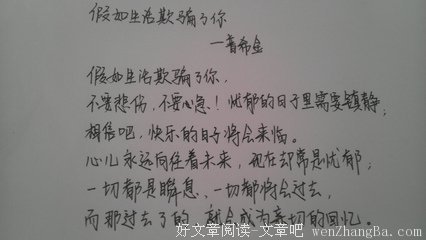 假如生活欺骗了你
—普希金
假如生活欺骗了你，
不要悲伤，不要心急！忧郁的日子里需要镇静；
相信吧，快乐的日子将会来临。
心儿永远向往着未来，现在却常是忧郁；
一切都是瞬息，一切都将会过去，
而那过去了的，就会成为亲切的回忆。
好文章阅读-文章吧 wenZhangBa.com